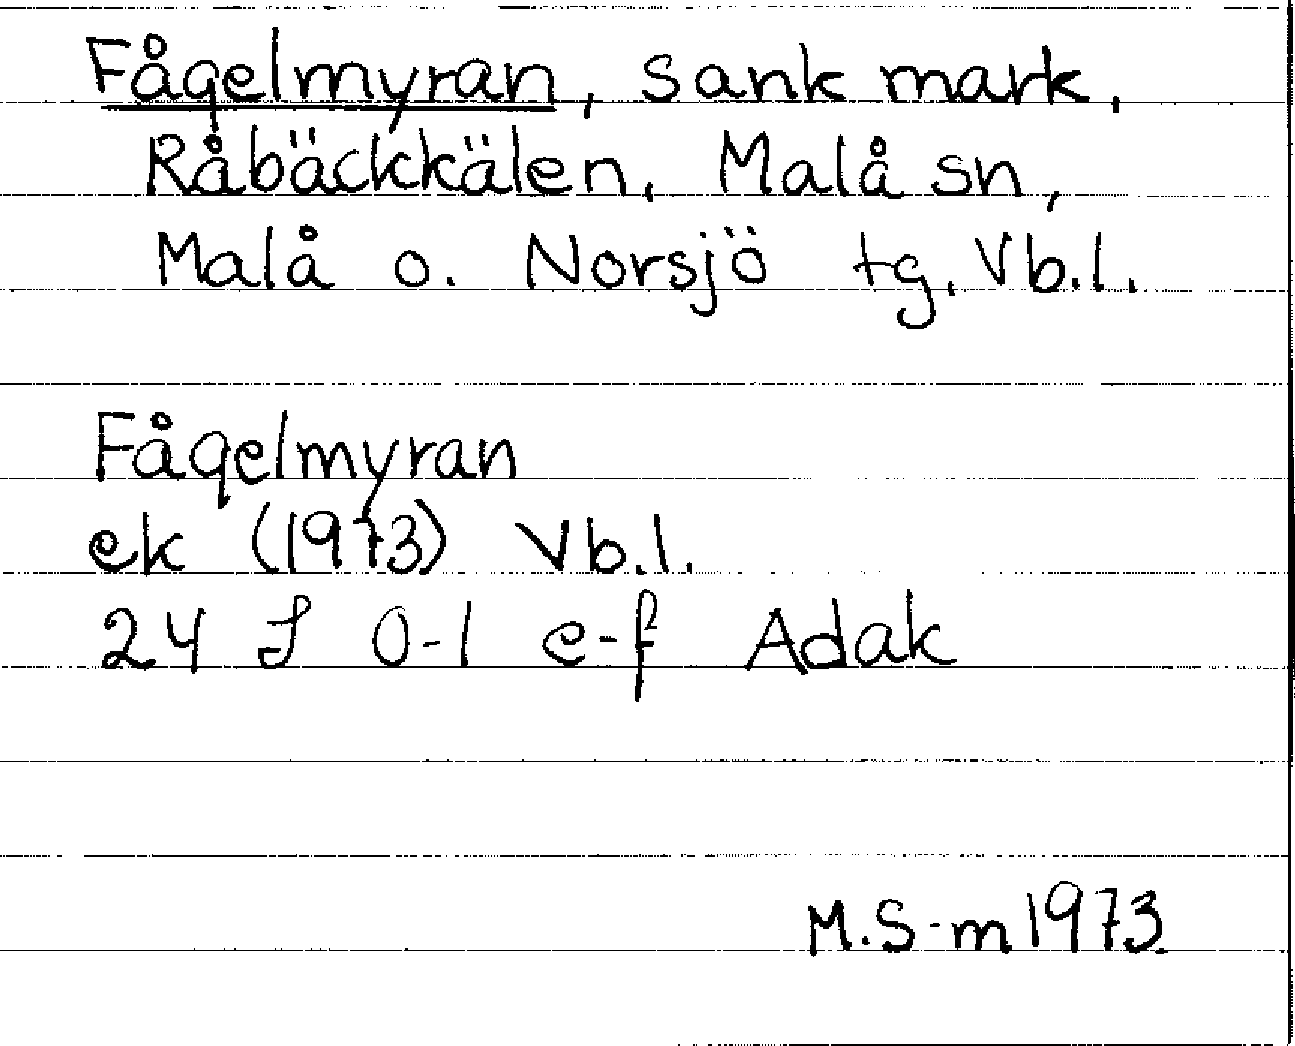 Fågelmyran, sank mark,
Råbäckkälen, Malå sn,
Malå o. Norsjö tg, Vb.l.
Fågelmyran
ek (1973) Vb.l.
24 J 0-1 e-f Adak
M.S-m 1973